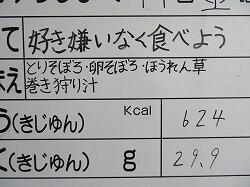 て 好き嫌いなく食べよう
え とりそぼろ・卵そぼろ・ほうれん草
巻き狩り汁
う(きじゅん) Kcal 624
く(きじゅん) g 29.9